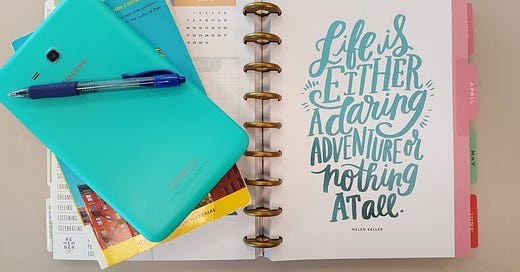 SAMSUNG
MATERIAL
LOVING
DREAMING
FEELING
LISTENING
CELEBRATING
REMEMBER
Life is
EITHER
A daring
ADVENTURE or
nothing
AT all.
HELEN KELLER
APRIL
MAY
JUNE